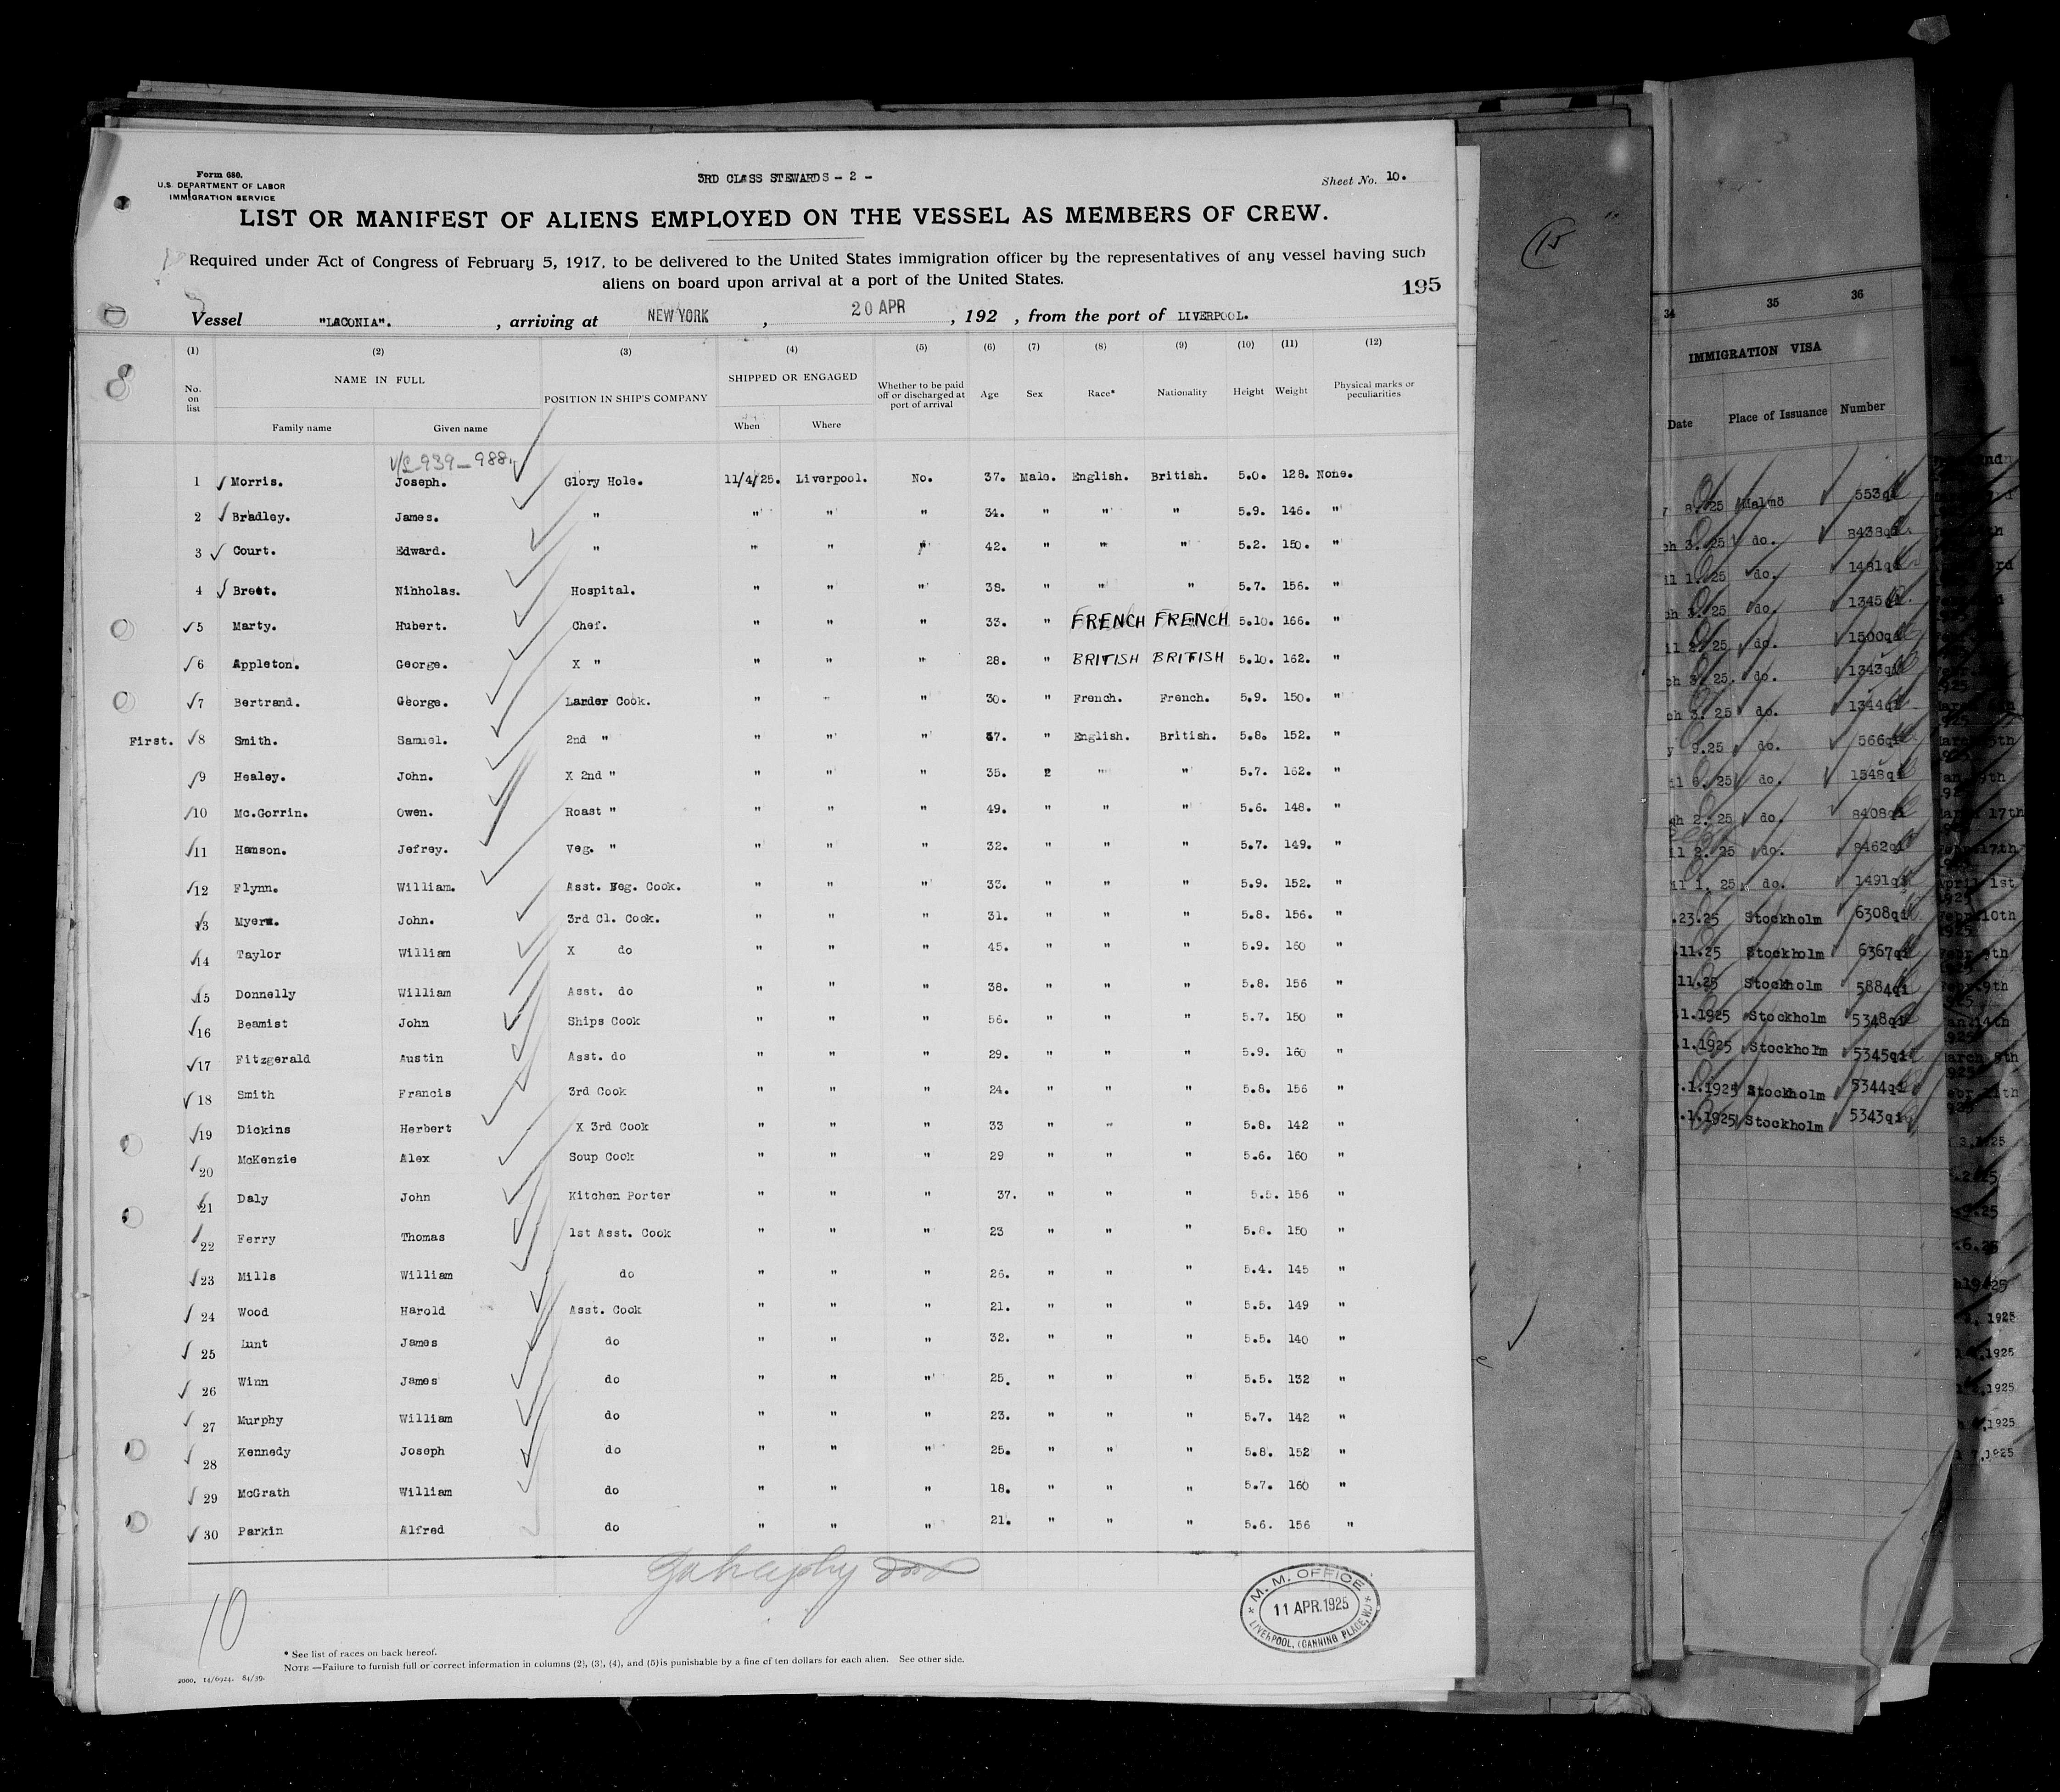 Form 680.
U.S. DEPARTMENT OF LABOR
IMMIGRATION SERVICE
3RD CLASS STEWARDS - 2 -
Sheet No. 10.
LIST OR MANIFEST OF ALIENS EMPLOYED ON THE VESSEL AS MEMBERS OF CREW.
Required under Act of Congress of February 5, 1917, to be delivered to the United States immigration officer by the representatives of any vessel having such
aliens on board upon arrival at a port of the United States.
195
Vessel "LACONIA". , arriving at NEW YORK , 20 APR , 192 , from the port of LIVERPOOL.
(1) (2) (3) (4) (5) (6) (7) (8) (9) (10) (11) (12)
No. on list NAME IN FULL POSITION IN SHIP'S COMPANY SHIPPED OR ENGAGED Whether to be paid off or discharged at port of arrival Age Sex Race* Nationality Height Weight Physical marks or peculiarities
Family name Given name When Where
V/S 939-988.
1 Morris. Joseph. Glory Hole. 11/4/25. Liverpool. No. 37. Male. English. British. 5.0. 128. None.
2 Bradley. James. " " " " 34. " " " 5.9. 146. "
3 Court. Edward. " " " " 42. " " " 5.2. 150. "
4 Breet. Nihholas. Hospital. " " " 38. " " " 5.7. 156. "
5 Marty. Hubert. Chef. " " " 33. " FRENCH FRENCH 5.10. 166. "
6 Appleton. George. X " " " " 28. " BRITISH BRITISH 5.10. 162. "
7 Bertrand. George. Larder Cook. " " " 30. " French. French. 5.9. 150. "
First. 8 Smith. Samuel. 2nd " " " " 37. " English. British. 5.8. 152. "
9 Healey. John. X 2nd " " " " 35. " " " 5.7. 162. "
10 Mc.Gorrin. Owen. Roast " " " " 49. " " " 5.6. 148. "
11 Hanson. Jefrey. Veg. " " " " 32. " " " 5.7. 149. "
12 Flynn. William. Asst. Veg. Cook. " " " 33. " " " 5.9. 152. "
13 Myers. John. 3rd Cl. Cook. " " " 31. " " " 5.8. 156. "
14 Taylor William X do " " " 45. " " " 5.9. 160 "
15 Donnelly William Asst. do " " " 38. " " " 5.8. 156 "
16 Beamist John Ships Cook " " " 56. " " " 5.7. 150 "
17 Fitzgerald Austin Asst. do " " " 29. " " " 5.9. 160 "
18 Smith Francis 3rd Cook " " " 24. " " " 5.8. 156 "
19 Dickins Herbert X 3rd Cook " " " 33 " " " 5.8. 142 "
20 McKenzie Alex Soup Cook " " " 29 " " " 5.6. 160 "
21 Daly John Kitchen Porter " " " 37. " " " 5.5. 156 "
22 Ferry Thomas 1st Asst. Cook " " " 23 " " " 5.8. 150 "
23 Mills William do " " " 26. " " " 5.4. 145 "
24 Wood Harold Asst. Cook " " " 21. " " " 5.5. 149 "
25 James do " " " 32. " " " 5.5. 140 "
26 Winn James do " " " 25. " " " 5.5. 132 "
27 Murphy William do " " " 23. " " " 5.7. 142 "
28 Kennedy Joseph do " " " 25. " " " 5.8. 152 "
29 McGrath William do " " " 18. " " " 5.7. 160 "
30 Parkin Alfred do " " " 21. " " " 5.6. 156 "
10
M. M. OFFICE
11 APR. 1925
LIVERPOOL, (CANNING PLACE, W.)
* See list of races on back hereof.
NOTE —Failure to furnish full or correct information in columns (2), (3), (4), and (5) is punishable by a fine of ten dollars for each alien. See other side.
2000, 14/6924. 84/39.
15
34 35 36
IMMIGRATION VISA
Date Place of Issuance Number
8. 25 Malmö 553qi
3. 25 do. 8438qi
1. 25 do. 1481qi
3. 25 do. 1345
2. 25 do. 1500qi
3. 25. do. 1343qi
3. 25 do. 1344qi
9.25 do. 566qi
6. 25 do. 1548qi
2. 25 do. 8408qi
2. 25 do. 8462qi
1. 25 do. 1491qi
.23.25 Stockholm 6308qi
.11.25 Stockholm 6367qi
11.25 Stockholm 5884qi
1.1925 Stockholm 5348qi
1.1925 Stockholm 5345qi
.1.1925 Stockholm 5344qi
.1.1925 Stockholm 5343qi